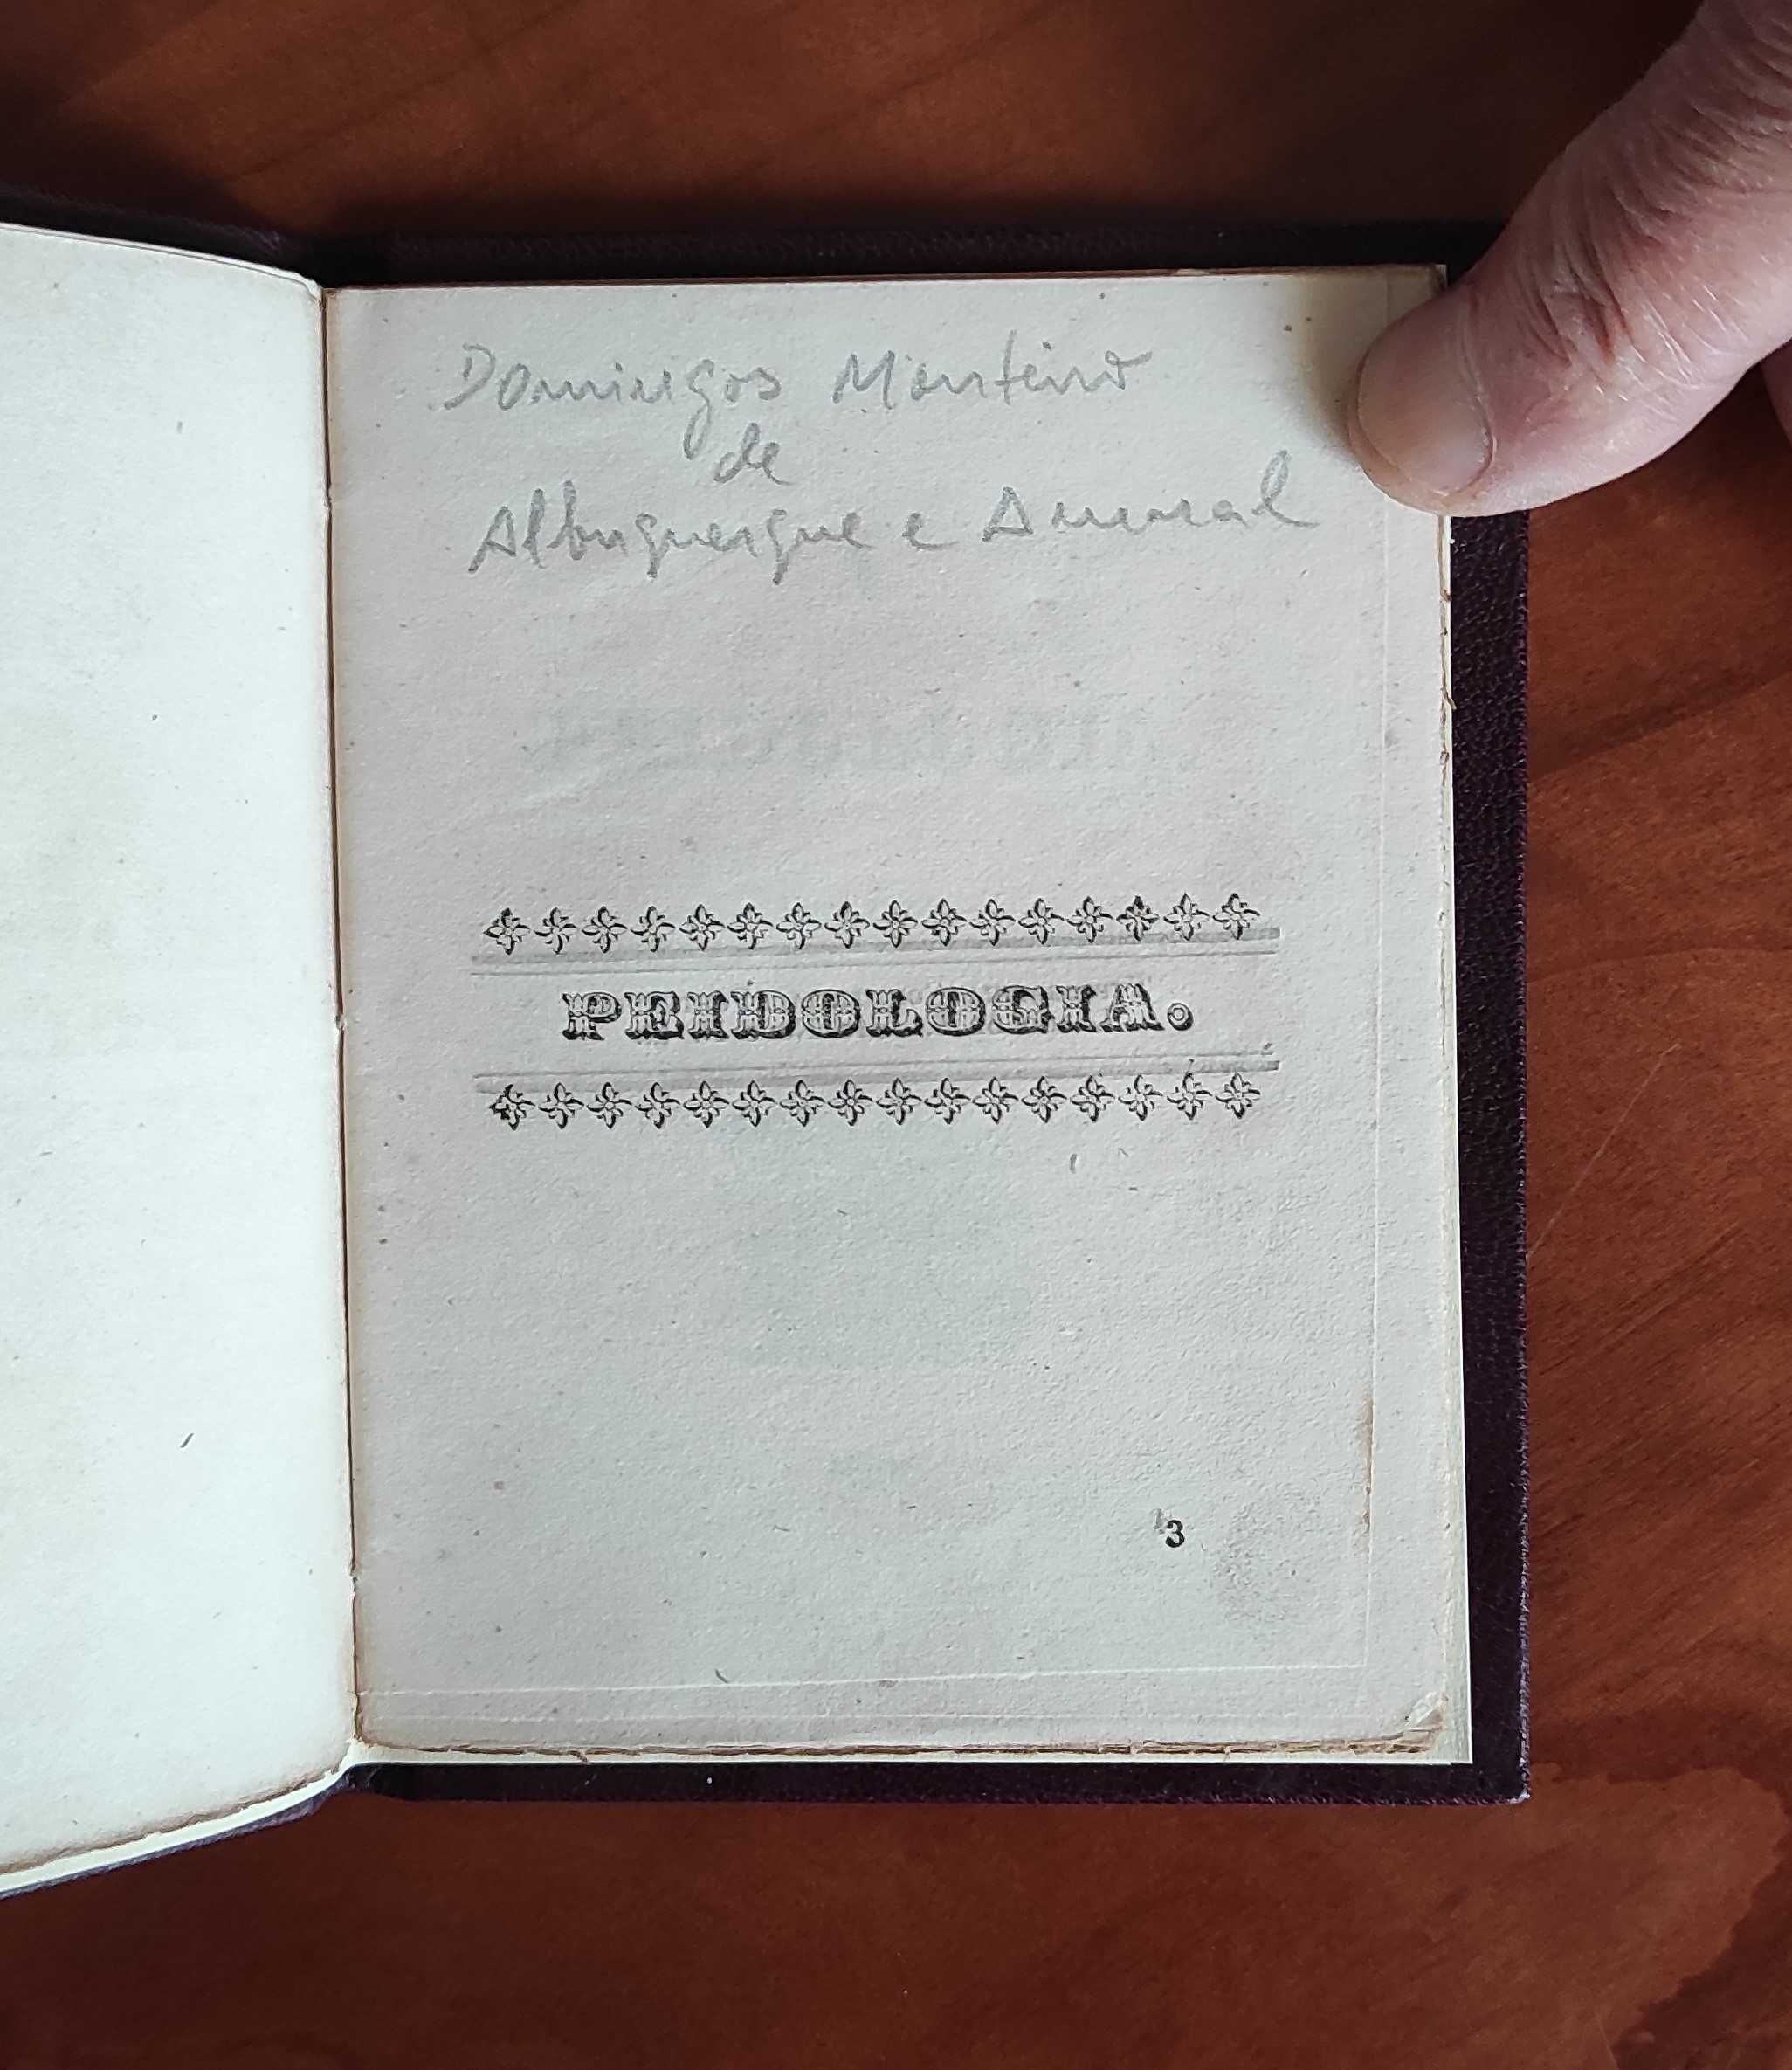 Domingos Monteiro
de
Albuquerque e Amaral
PEIDOLOGIA.
3